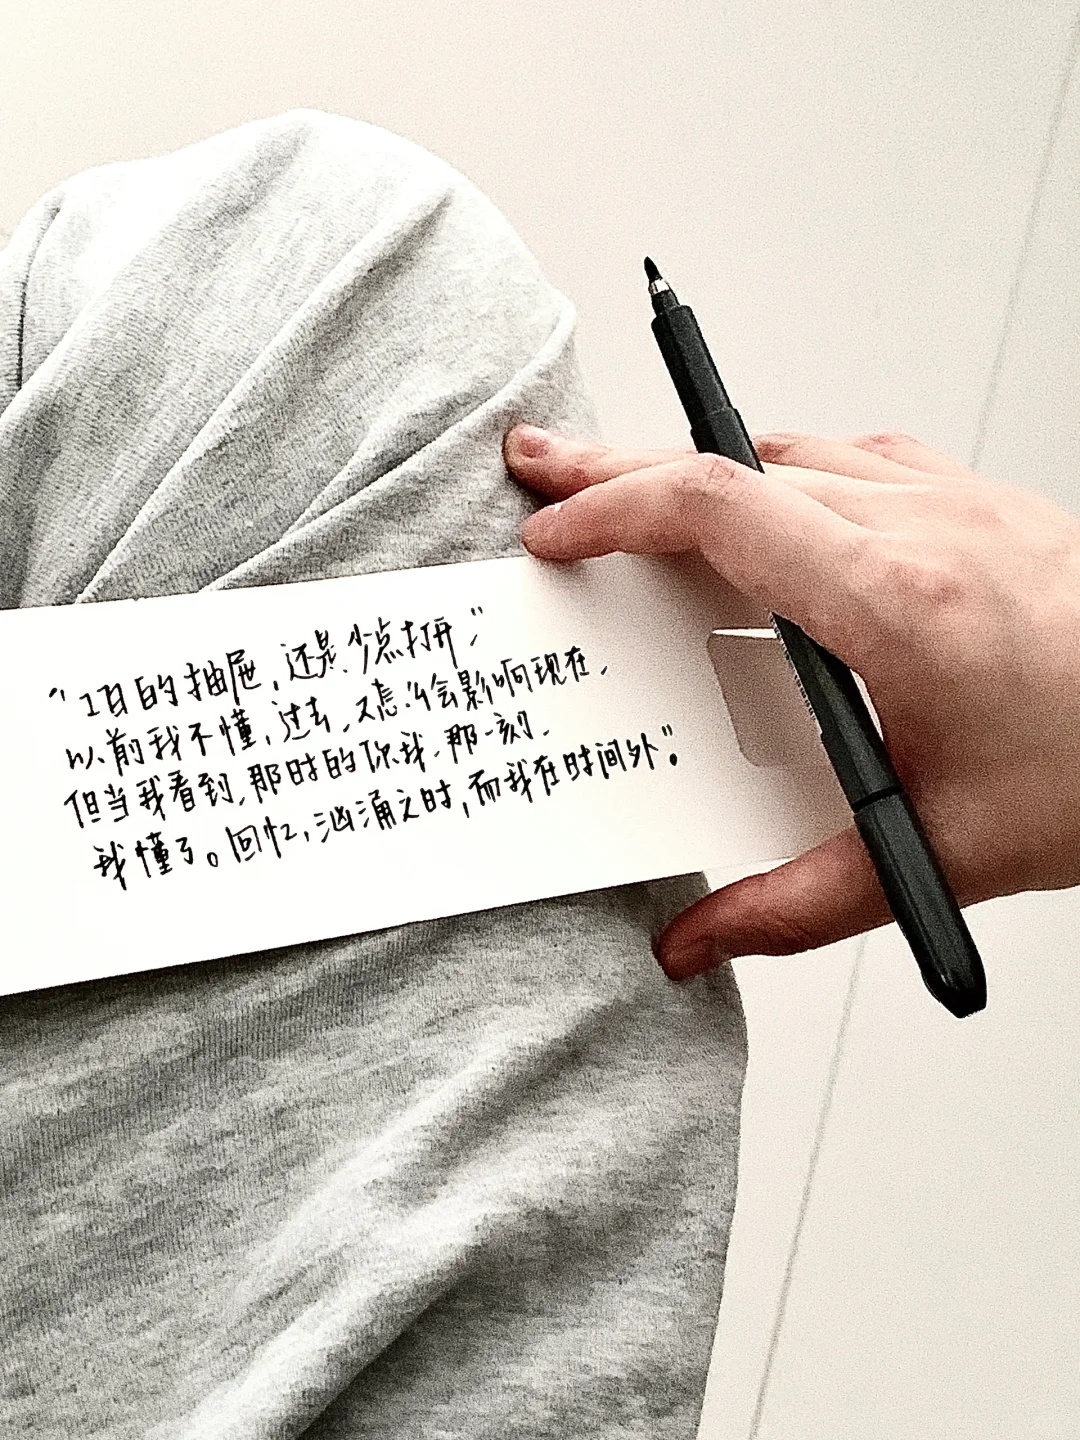 “旧日的抽屉，还是少点打开”
以前我不懂，过去、又怎么会影响现在、
但当我看到、那时的你我、那一刻、
我懂了。回忆，汹涌之时，而我在时间外”。